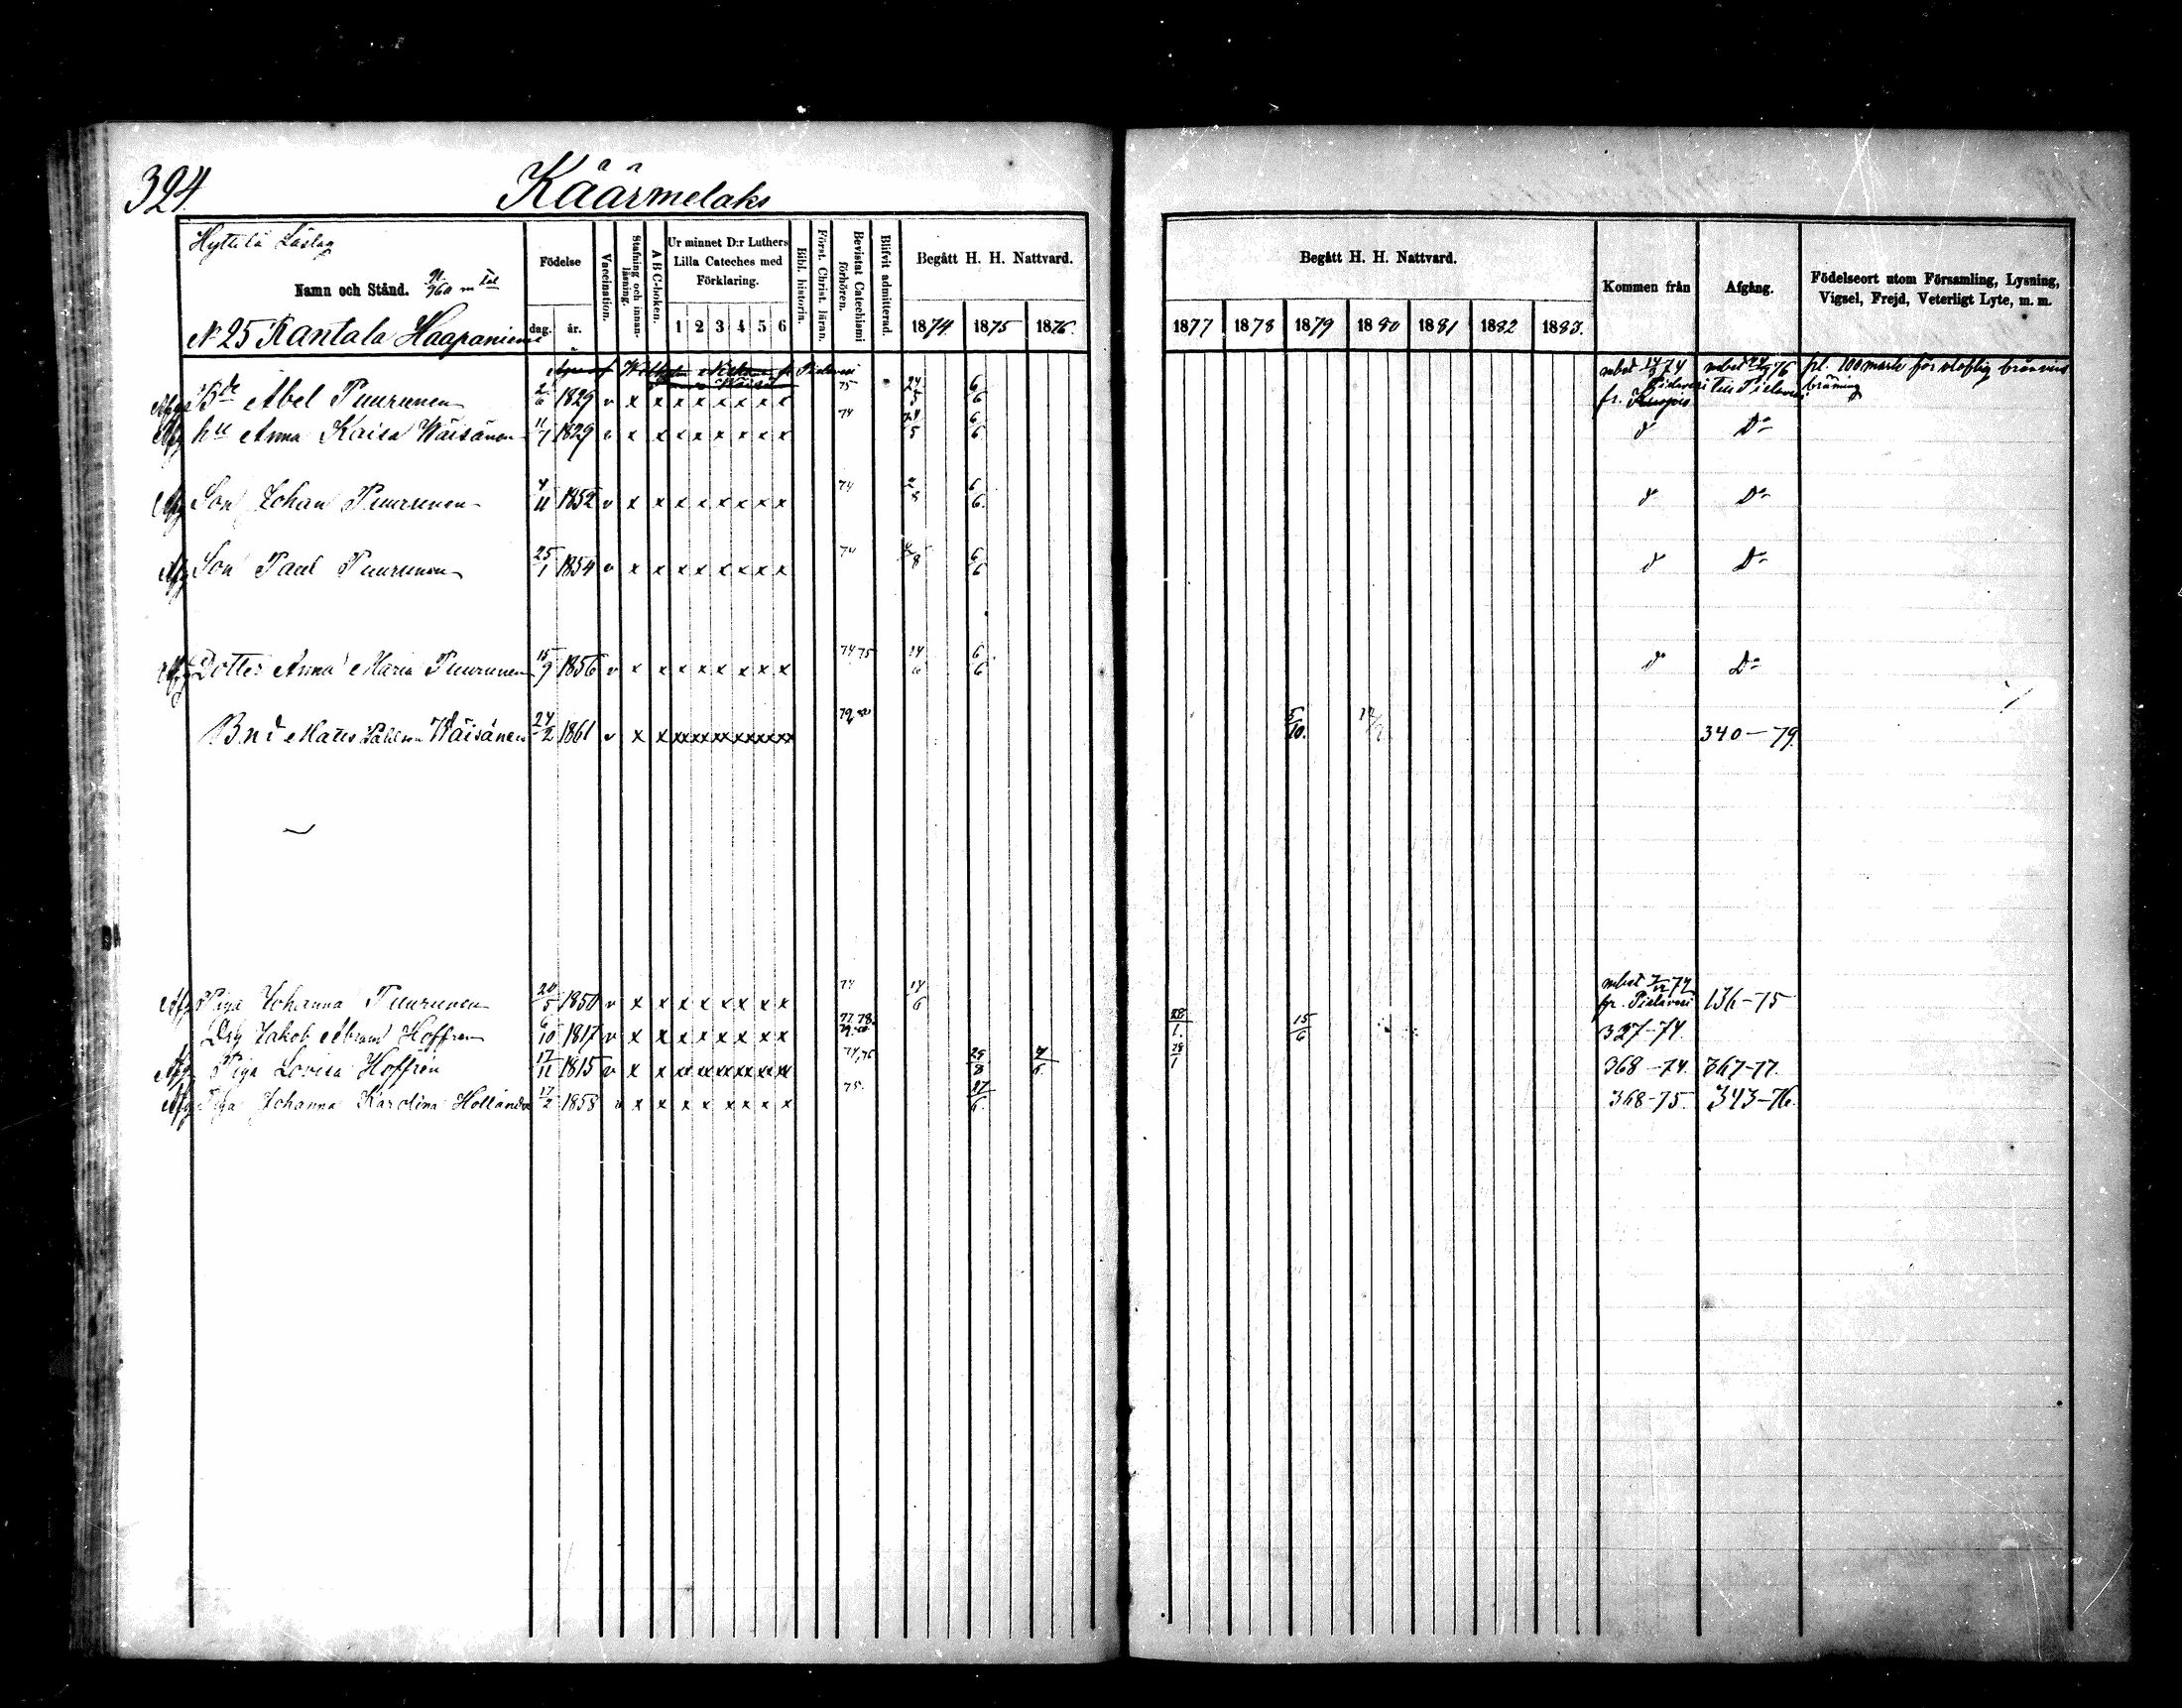 324.
Käärmelaks
Hyttilä Läslag
Namn och Stånd.
Födelse
dag. år.
Vaccination.
Stafning och innanläsning.
A B C-boken.
Ur minnet D:r Luthers Lilla Cateches med Förklaring.
1 2 3 4 5 6
Bibl. historia.
Först. Christ. läran.
Bevistat Catechismi förhören.
Blifvit admitterad.
Begått H. H. Nattvard.
1874. 1875 1876.
Begått H. H. Nattvard.
1877 1878 1879 1880 1881 1882 1883.
Kommen från
Afgång.
Födelseort utom Församling, Lysning, Vigsel, Frejd, Veterligt Lyte, m. m.
N 25 Rantala Haapaniemi
Abel Puurunen 2/6 1829 v x x x x x x x x 75 24/5 6/6 fr. Pielavesi Till Pielavesi pl. 100 mark för olaflig bränvins bränning
Afg hu Anna Kaisa Wäisänen 11/1 1829 v x x x x x x x x 74 24/5 6/6 d Do
Afg Son Johan Puurunen 4/11 1852 v x x x x x x x x 74 6/6 d Do
Afg Son Paul Puurunen 25/1 1854 v x x x x x x x x 74 6/6 d Do
Afg Dotter Anna Maria Puurunen 15/9 1856 v x x x x x x x x 74 75 14/6 6/6 d Do
Wäisänen 24/2 1861 v x x xx xx xx xx xx xx 79, 80 5/10. 340-79.
Afg Piga Johanna Puurunen 20/5 1850 v x x x x x x x x 74 14/6 fr. Pielavesi 136-75
Drg Jakob Abram Hoffren 6/10 1817 v x x x x x x x x 77. 78. 79. 80 28/1. 15/6 327-74.
Afg Piga Lovisa Hoffrén 17/11 1815 v x x xx xx xx xx xx xx 74, 76 25/8 28/1 368-74. 367-77.
Afg Piga Johanna Karolina Holländer 17/2 1858 v x x x x x x x x 75. 17/6. 368-75. 343-76.